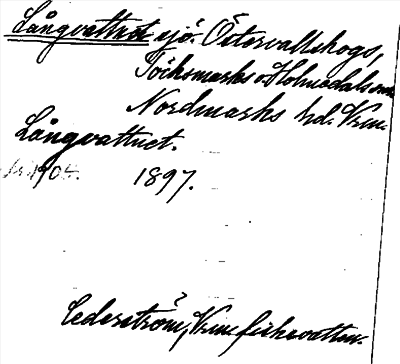 Långvattnet sjö. Östervallskogs,
Töcksmarks o. Holmedals snr
Nordmarks hd. Vrm.
Långvattnet.
1904. 1897.
Cederström, Vrm fiskevatten.